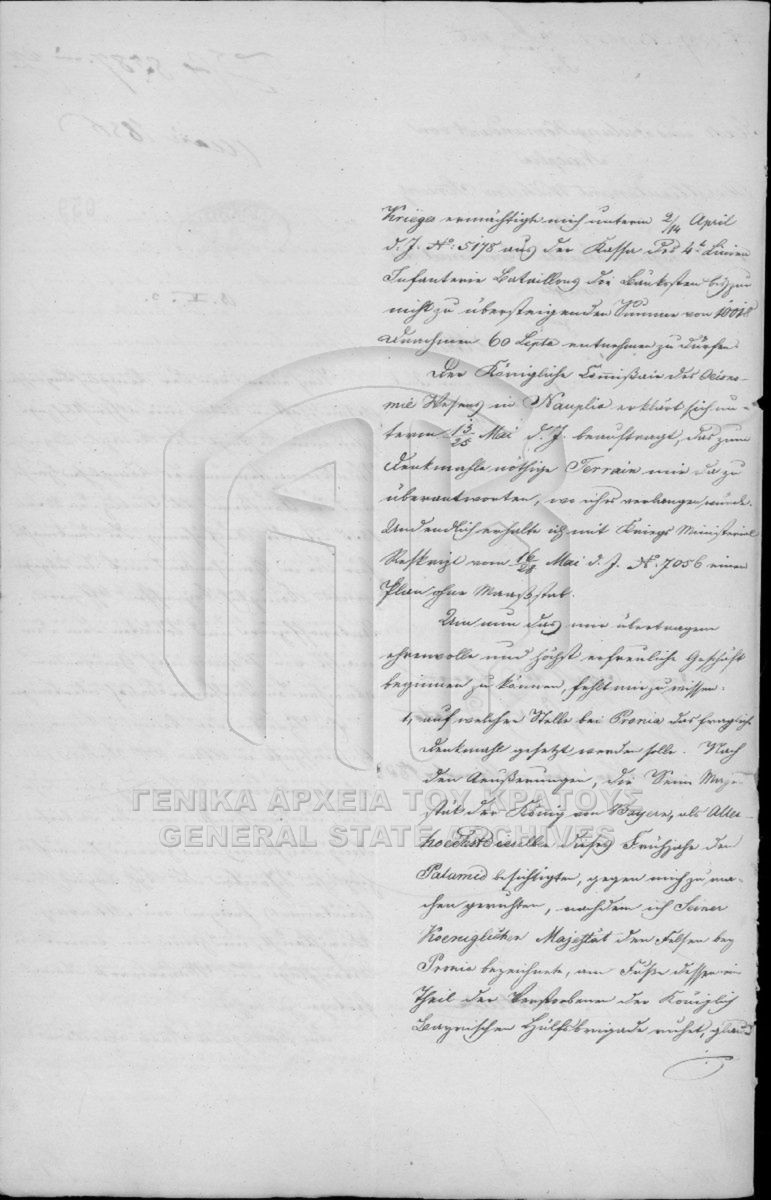 Krieges ermächtigte mich unterm 2/14 April
d. J. No. 5178 aus der Kassa des 4t. Linien
Infanterie Bataillons die Baukosten bis zur
nicht zu übersteigenden Summe von 1001
Drachmen 60 Lepta entnehmen zu dürfen.
Der Königliche Commißair des Oecono-
mie Wesens in Nauplia erklärt sich un-
term 13/25 Mai d. J. beauftragt, das zum
Denkmahle nöthige Terrain mir da zu
überantworten, wo ich es verlangen würde.
Und endlich erhalte ich mit Kriegs Ministerial
Reskript vom 16/28 Mai d. J. No. 7056 einen
Plan ohne Maaßstab.
Um nun das mir übertragene
ehrenvolle und höchst erfreuliche Geschäft
beginnen zu können, fehlt mir zu wissen:
1, auf welcher Stelle bei Pronia das fragliche
Denkmahl gesetzt werden solle. Nach
den Aeußerungen, die Seine Maje-
stät der König von Bayern, als Aller-
hoechstdieselbe dieses Frühjahr den
Palamid besichtigten, gegen mich zu ma-
chen geruhten, nachdem ich Seiner
Koeniglichen Majestät den Felsen bey
Pronia bezeichnete, am Fuße dessen ein
Theil der Verstorbenen der Königlich
Bayrischen Hülfsbrigade ruhet, glaub
ΓΕΝΙΚΑ ΑΡΧΕΙΑ ΤΟΥ ΚΡΑΤΟΥΣ
GENERAL STATE ARCHIVES